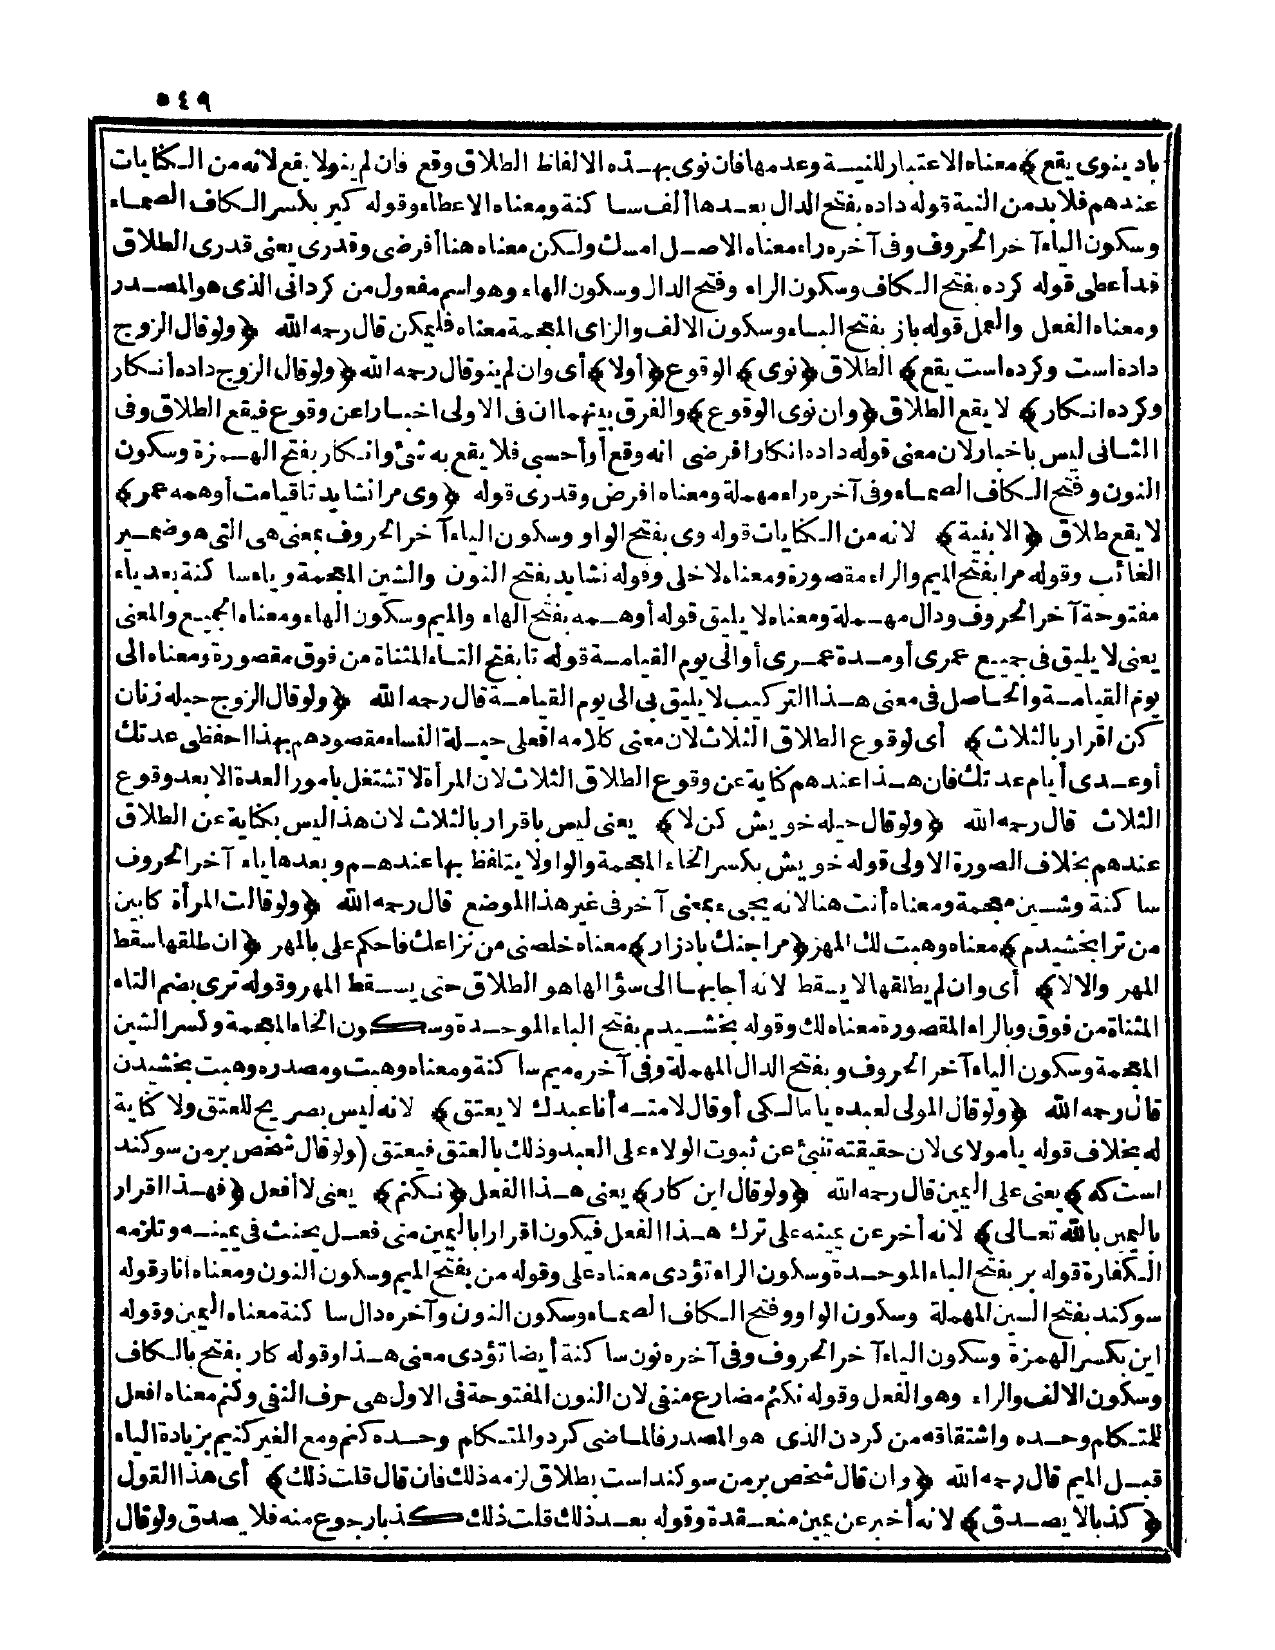 ٥٤٩
باد ينوى يقع﴾ معناه الاعتبار للنيسة وعدمها فان نوى بهذه الالفاظ الطلاق وقع فان لم ينو لا يقع لانه من الكنايات
عندهم فلا بد من النية قوله داده بفتح الدال بعدها ألف ساكنة ومعناه الاعطاء وقوله كير بكسر الكاف الصماء
وسكون الياء آخر الحروف وفى آخره راء معناه الاصل امسك ولكن معناه هنا أفرضى وقدرى يعنى قدرى الطلاق
قد أعطى قوله كرده بفتح الكاف وسكون الراء وفتح الدال وسكون الهاء وهو اسم مفعول من كردانى الذى هو المصدر
ومعناه الفعل والعمل قوله باز بفتح الباء وسكون الالف والزاى المعجمة معناه فليكن قال رحمه الله ﴿ولو قال الزوج
داده است وكرده است يقع﴾ الطلاق ﴿نوى﴾ الوقوع ﴿أولا﴾ أى وان لم ينو قال رحمه الله ﴿ولو قال الزوج داده أنكار
وكرده انكار﴾ لا يقع الطلاق ﴿وان نوى الوقوع﴾ والفرق بينهما ان فى الاولى اخبارا عن وقوع فيقع الطلاق وفى
الثانى ليس باخبار لان معنى قوله داده انكار افرضى انه وقع أو أحسبى فلا يقع به شئ وانكار بفتح الهمزة وسكون
النون وفتح الكاف الصماء وفى آخره راء مهملة ومعناه افرض وقدرى قوله ﴿وى مرا نشايد تاقيامت أو همه عمر﴾
لا يقع طلاق ﴿الابنية﴾ لانه من الكنايات قوله وى بفتح الواو وسكون الياء آخر الحروف بمعنى هى التى هو ضمير
الغائب وقوله مرا بفتح الميم والراء مقصورة ومعناه لاجلى وقوله نشايد بفتح النون والشين المعجمة وياء ساكنة بعد ياء
مفتوحة آخر الحروف ودال مهملة ومعناه لا يليق قوله أو همه بفتح الهاء والميم وسكون الهاء ومعناه الجميع والمعنى
يعنى لا يليق فى جميع عمرى أو مدة عمرى أو الى يوم القيامة قوله تا بفتح التاء المثناة من فوق مقصورة ومعناه الى
يوم القيامة والحاصل فى معنى هذا التركيب لا يليق بى الى يوم القيامة قال رحمه الله ﴿ولو قال الزوج حيله زنان
كن اقرار بالثلاث﴾ أى لوقوع الطلاق الثلاث لان معنى كلامه افعلى حيلة النساء مقصودهم بهذا احفظى عدتك
أو عدى أيام عدتك فان هذا عندهم كناية عن وقوع الطلاق الثلاث لان المرأة لا تشتغل بامور العدة الا بعد وقوع
الثلاث قال رحمه الله ﴿ولو قال حيله خويش كن لا﴾ يعنى ليس باقرار بالثلاث لان هذا ليس بكناية عن الطلاق
عندهم بخلاف الصورة الاولى قوله خويش بكسر الخاء المعجمة والواو لا يتلفظ بها عندهم وبعدها ياء آخر الحروف
ساكنة وشين معجمة ومعناه أنت هنا لانه يجىء بمعنى آخر فى غير هذا الموضع قال رحمه الله ﴿ولو قالت المرأة كابين
من ترا بخشيدم﴾ معناه وهبت لك المهر ﴿مرا جنك باز دار﴾ معناه خلصنى من نزاعك فاحكم على بالمهر ﴿ان طلقها سقط
المهر والا لا﴾ أى وان لم يطلقها لا يسقط لانه أجابها الى سؤالها هو الطلاق حتى يسقط المهر وقوله ترى بضم التاء
المثناة من فوق وبالراء المقصورة معناه لك وقوله بخشيدم بفتح الباء الموحدة وسكون الخاء المعجمة وكسر الشين
المعجمة وسكون الياء آخر الحروف وبفتح الدال المهملة وفى آخره ميم ساكنة ومعناه وهبت ومصدره وهبت بخشيدن
قال رحمه الله ﴿ولو قال المولى لعبده يا مالكى أو قال لامته أنا عبدك لا يعتق﴾ لانه ليس بصريح للعتق ولا كناية
له بخلاف قوله يا مولاى لان حقيقته تنبئ عن ثبوت الولاء على العبد وذلك بالعتق فيعتق (ولو قال شخص بر من سوكند
است كه﴾ يعنى على اليمين قال رحمه الله ﴿ولو قال اين كار﴾ يعنى هذا الفعل ﴿نكنم﴾ يعنى لا أفعل ﴿فهذا اقرار
باليمين بالله تعالى﴾ لانه أخبر عن يمينه على ترك هذا الفعل فيكون اقرارا باليمين متى فعل يحنث فى يمينه وتلزمه
الكفارة قوله بر بفتح الباء الموحدة وسكون الراء تؤدى معناه على وقوله من بفتح الميم وسكون النون ومعناه انا وقوله
سوكند بفتح السين المهملة وسكون الواو وفتح الكاف الصماء وسكون النون وآخره دال ساكنة معناه اليمين وقوله
اين بكسر الهمزة وسكون الياء آخر الحروف وفى آخره نون ساكنة أيضا تؤدى معنى هذا وقوله كار بفتح بالكاف
وسكون الالف والراء وهو الفعل وقوله نكنم مضارع منفى لان النون المفتوحة فى الاول هى حرف النفى وكنم معناه افعل
للمتكلم وحده واشتقاقه من كردن الذى هو المصدر فالماضى كرد والمتكلم وحده كنم ومع الغير كنيم بزيادة الياء
قبل الميم قال رحمه الله ﴿وان قال شخص بر من سوكند است بطلاق لزمه ذلك فان قال قلت ذلك﴾ أى هذا القول
﴿كذبا لا يصدق﴾ لانه أخبر عن يمين منعقدة وقوله بعد ذلك قلت ذلك كذبا رجوع منه فلا يصدق ولو قال